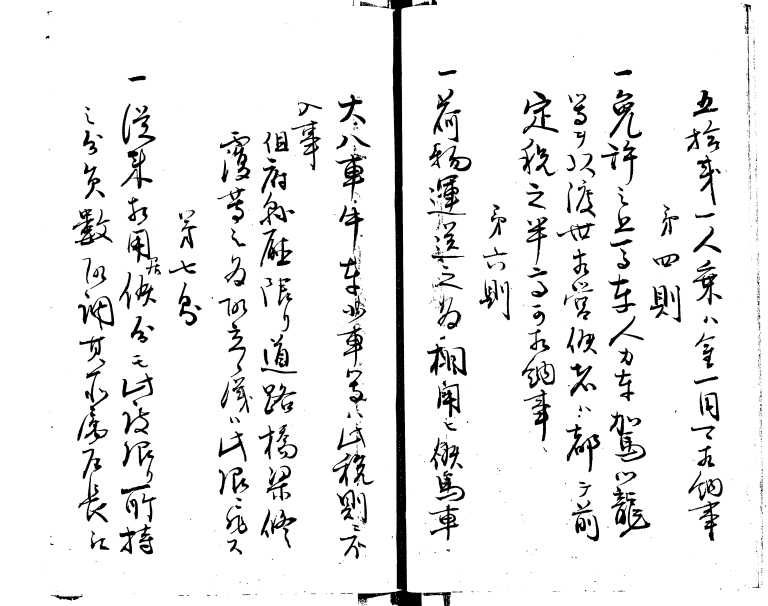 五拾銭一人乗ハ金一円可相納事
第四則
一免許之上馬車人力車駕馬小籠
等ヲ以渡世相営候者ハ都テ前
定税之半高可相納事
第六則
一荷物運送之為相用ヒ候馬車
大八車牛車小車等ハ此税則ニ不
入事
但府県庁限リ道路橋梁修
覆等之為取立候儀ハ此限ニ非ス
第七則
一従来相用居候分モ此度限リ所持
之分員数取調其所属戸長江